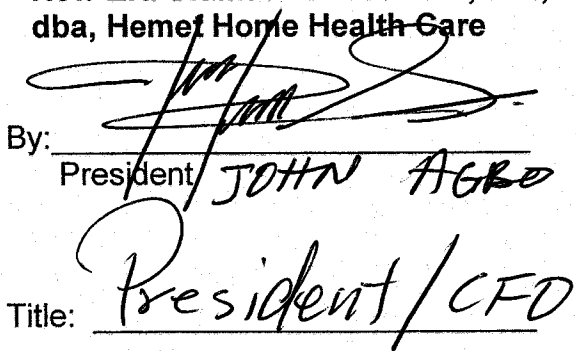 dba, Hemet Home Health Care
By:
President JOHN AGBO
Title: President/CFO